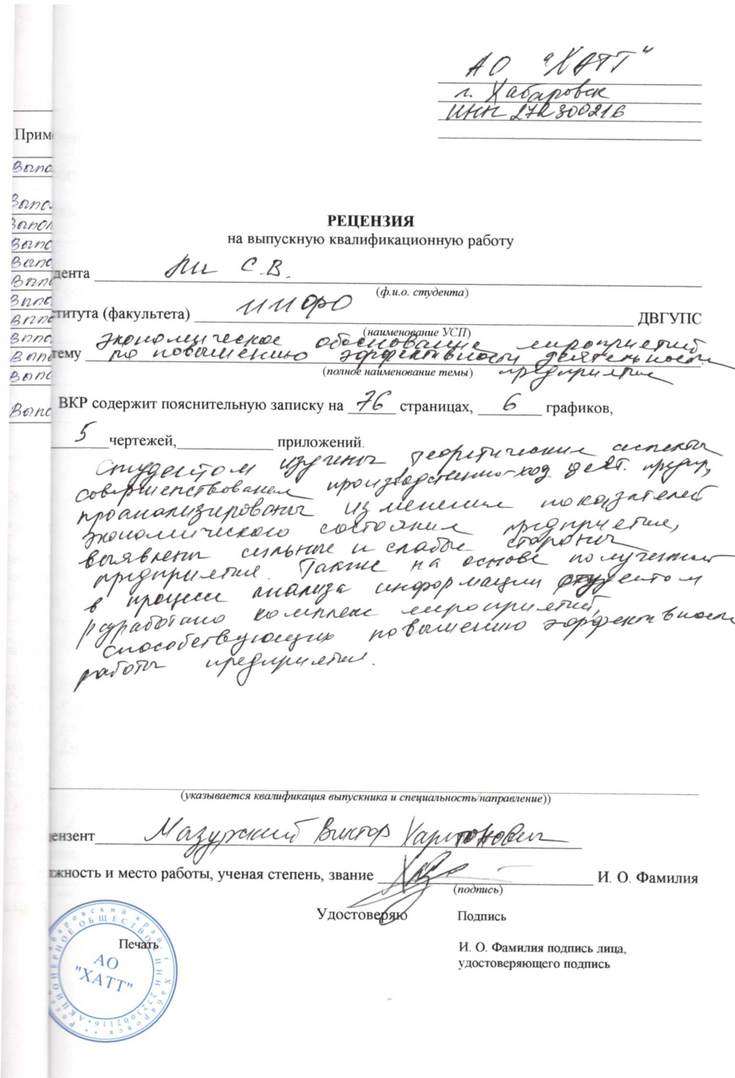 АО "ХАТТ"
г. Хабаровск
ИНН 272300216
Прим
Выпо
Выпо
Выпол
Выпо
Выпо
Выпо
Выпо
Выпо
Выпо
Выпо
Выпо
Выпо
РЕЦЕНЗИЯ
на выпускную квалификационную работу
дента С.В.
(ф.и.о. студента)
ститута (факультета) ИИФО ДВГУПС
(наименование УСП)
тему экономическое обоснование мероприятий
по повышению эффективности деятельности
(полное наименование темы) предприятия
ВКР содержит пояснительную записку на 76 страницах, 6 графиков,
5 чертежей, приложений.
Студентом изучены теоретические аспекты
совершенствования производственно-хоз. деят. предпр,
проанализированы изменения показателей
экономического состояния предприятия,
выявлены сильные и слабые стороны
предприятия. Также на основе полученной
в процессе анализа информации студентом
разработано комплекс мероприятий,
способствующих повышению эффективности
работы предприятия.
(указывается квалификация выпускника и специальность/направление))
цензент Виктор Харитонович
жность и место работы, ученая степень, звание И. О. Фамилия
(подпись)
Удостоверяю Подпись
Печать
И. О. Фамилия подпись лица,
удостоверяющего подпись
АО
"ХАТТ"